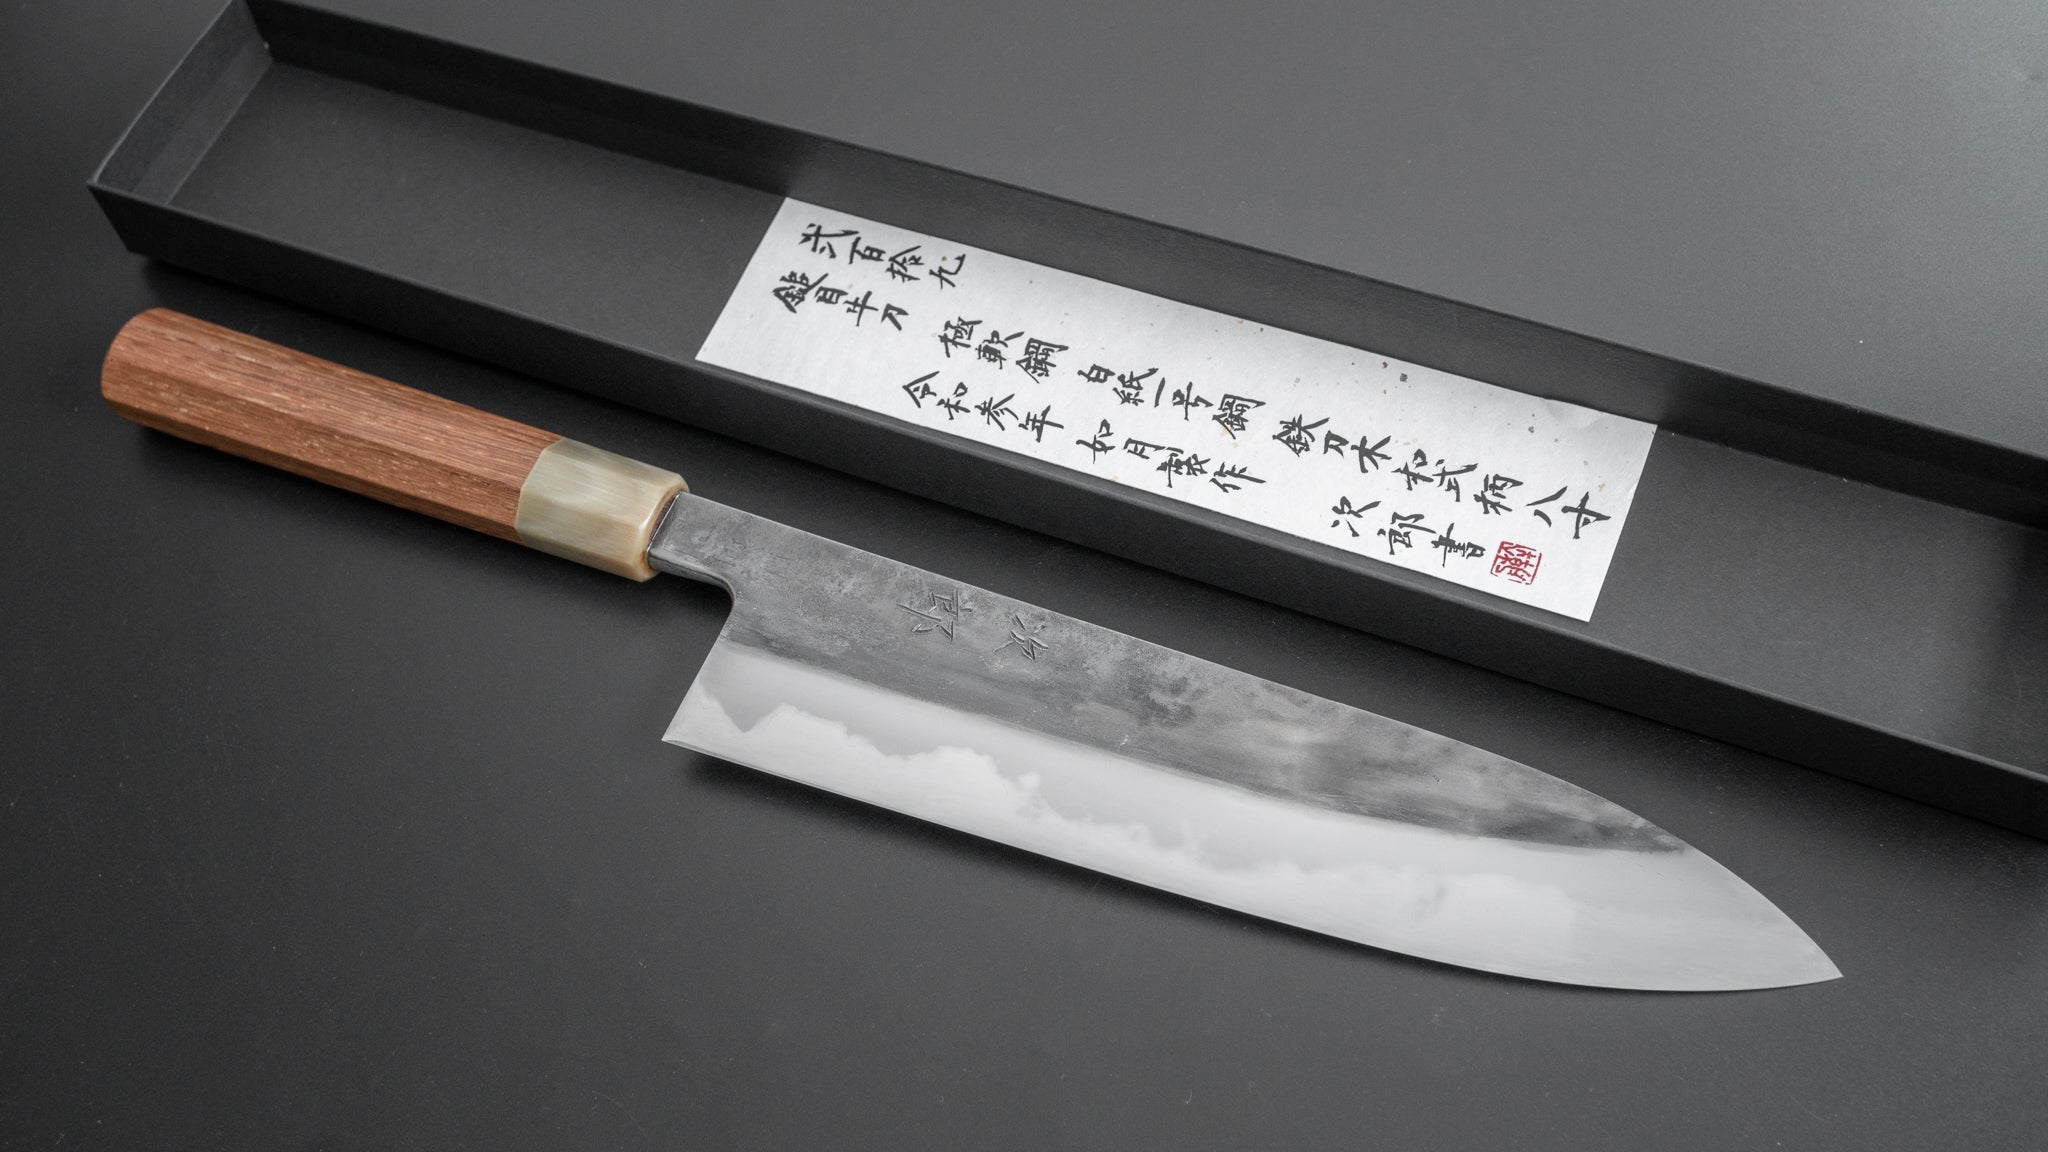 弐百拾九
鎚目牛刀 極軟鋼 白紙一号鋼 鉄刀木 和式柄 八寸
令和参年 如月製作 次郎書